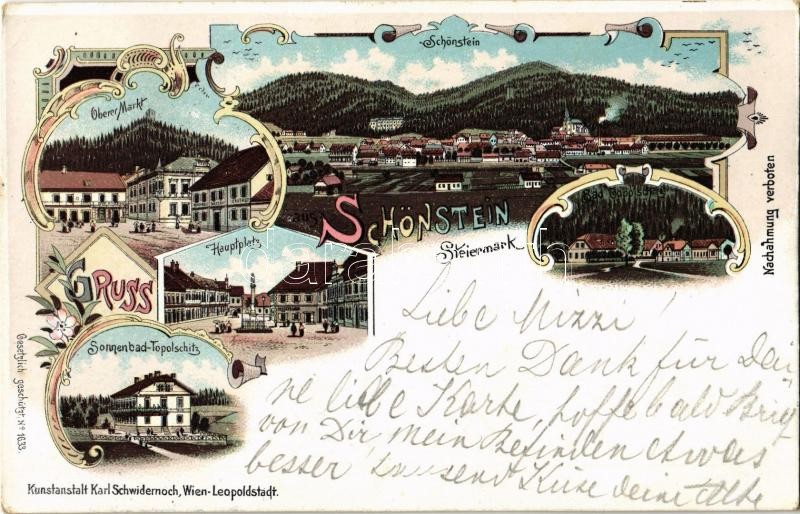 Schönstein
Oberer Markt
aus
SCHÖNSTEIN
Steiermark
Bad Topolschitz
Nachahmung verboten
Hauptplatz
GRUSS
Sonnenbad-Topolschitz
Gesetzlich geschützt. Nº 1633.
Liebe Mizzi!
Besten Dank für Dei
ne liebe Karte, hoffe bald Brief
von Dir, mein Befinden etwas
besser, tausend Küsse deine
Kunstanstalt Karl Schwidernoch, Wien-Leopoldstadt.